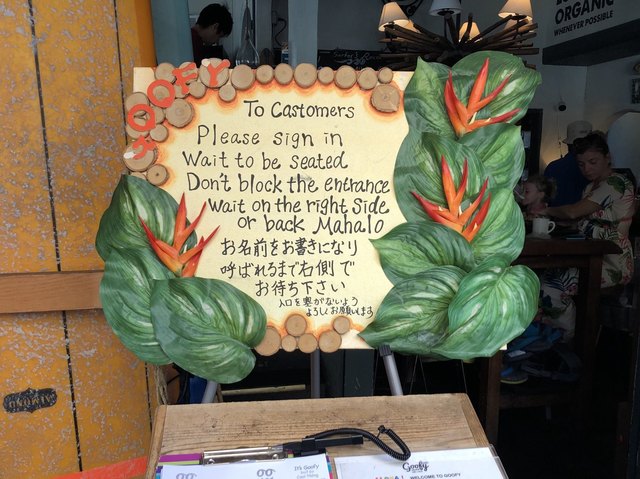 GOOFY
To Castomers
Please sign in
Wait to be seated
Don't block the entrance
Wait on the right side
or back Mahalo
お名前をお書きになり
呼ばれるまで右側で
お待ち下さい
入口を塞がないよう
よろしくお願いします
ORGANIC
WHENEVER POSSIBLE
It's Goofy
Goofy
WELCOME TO GOOFY